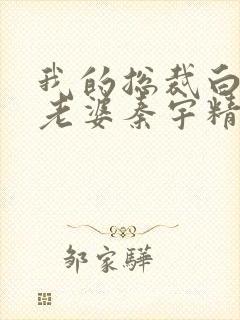 我的总裁白
老婆秦宇精
邹家骅